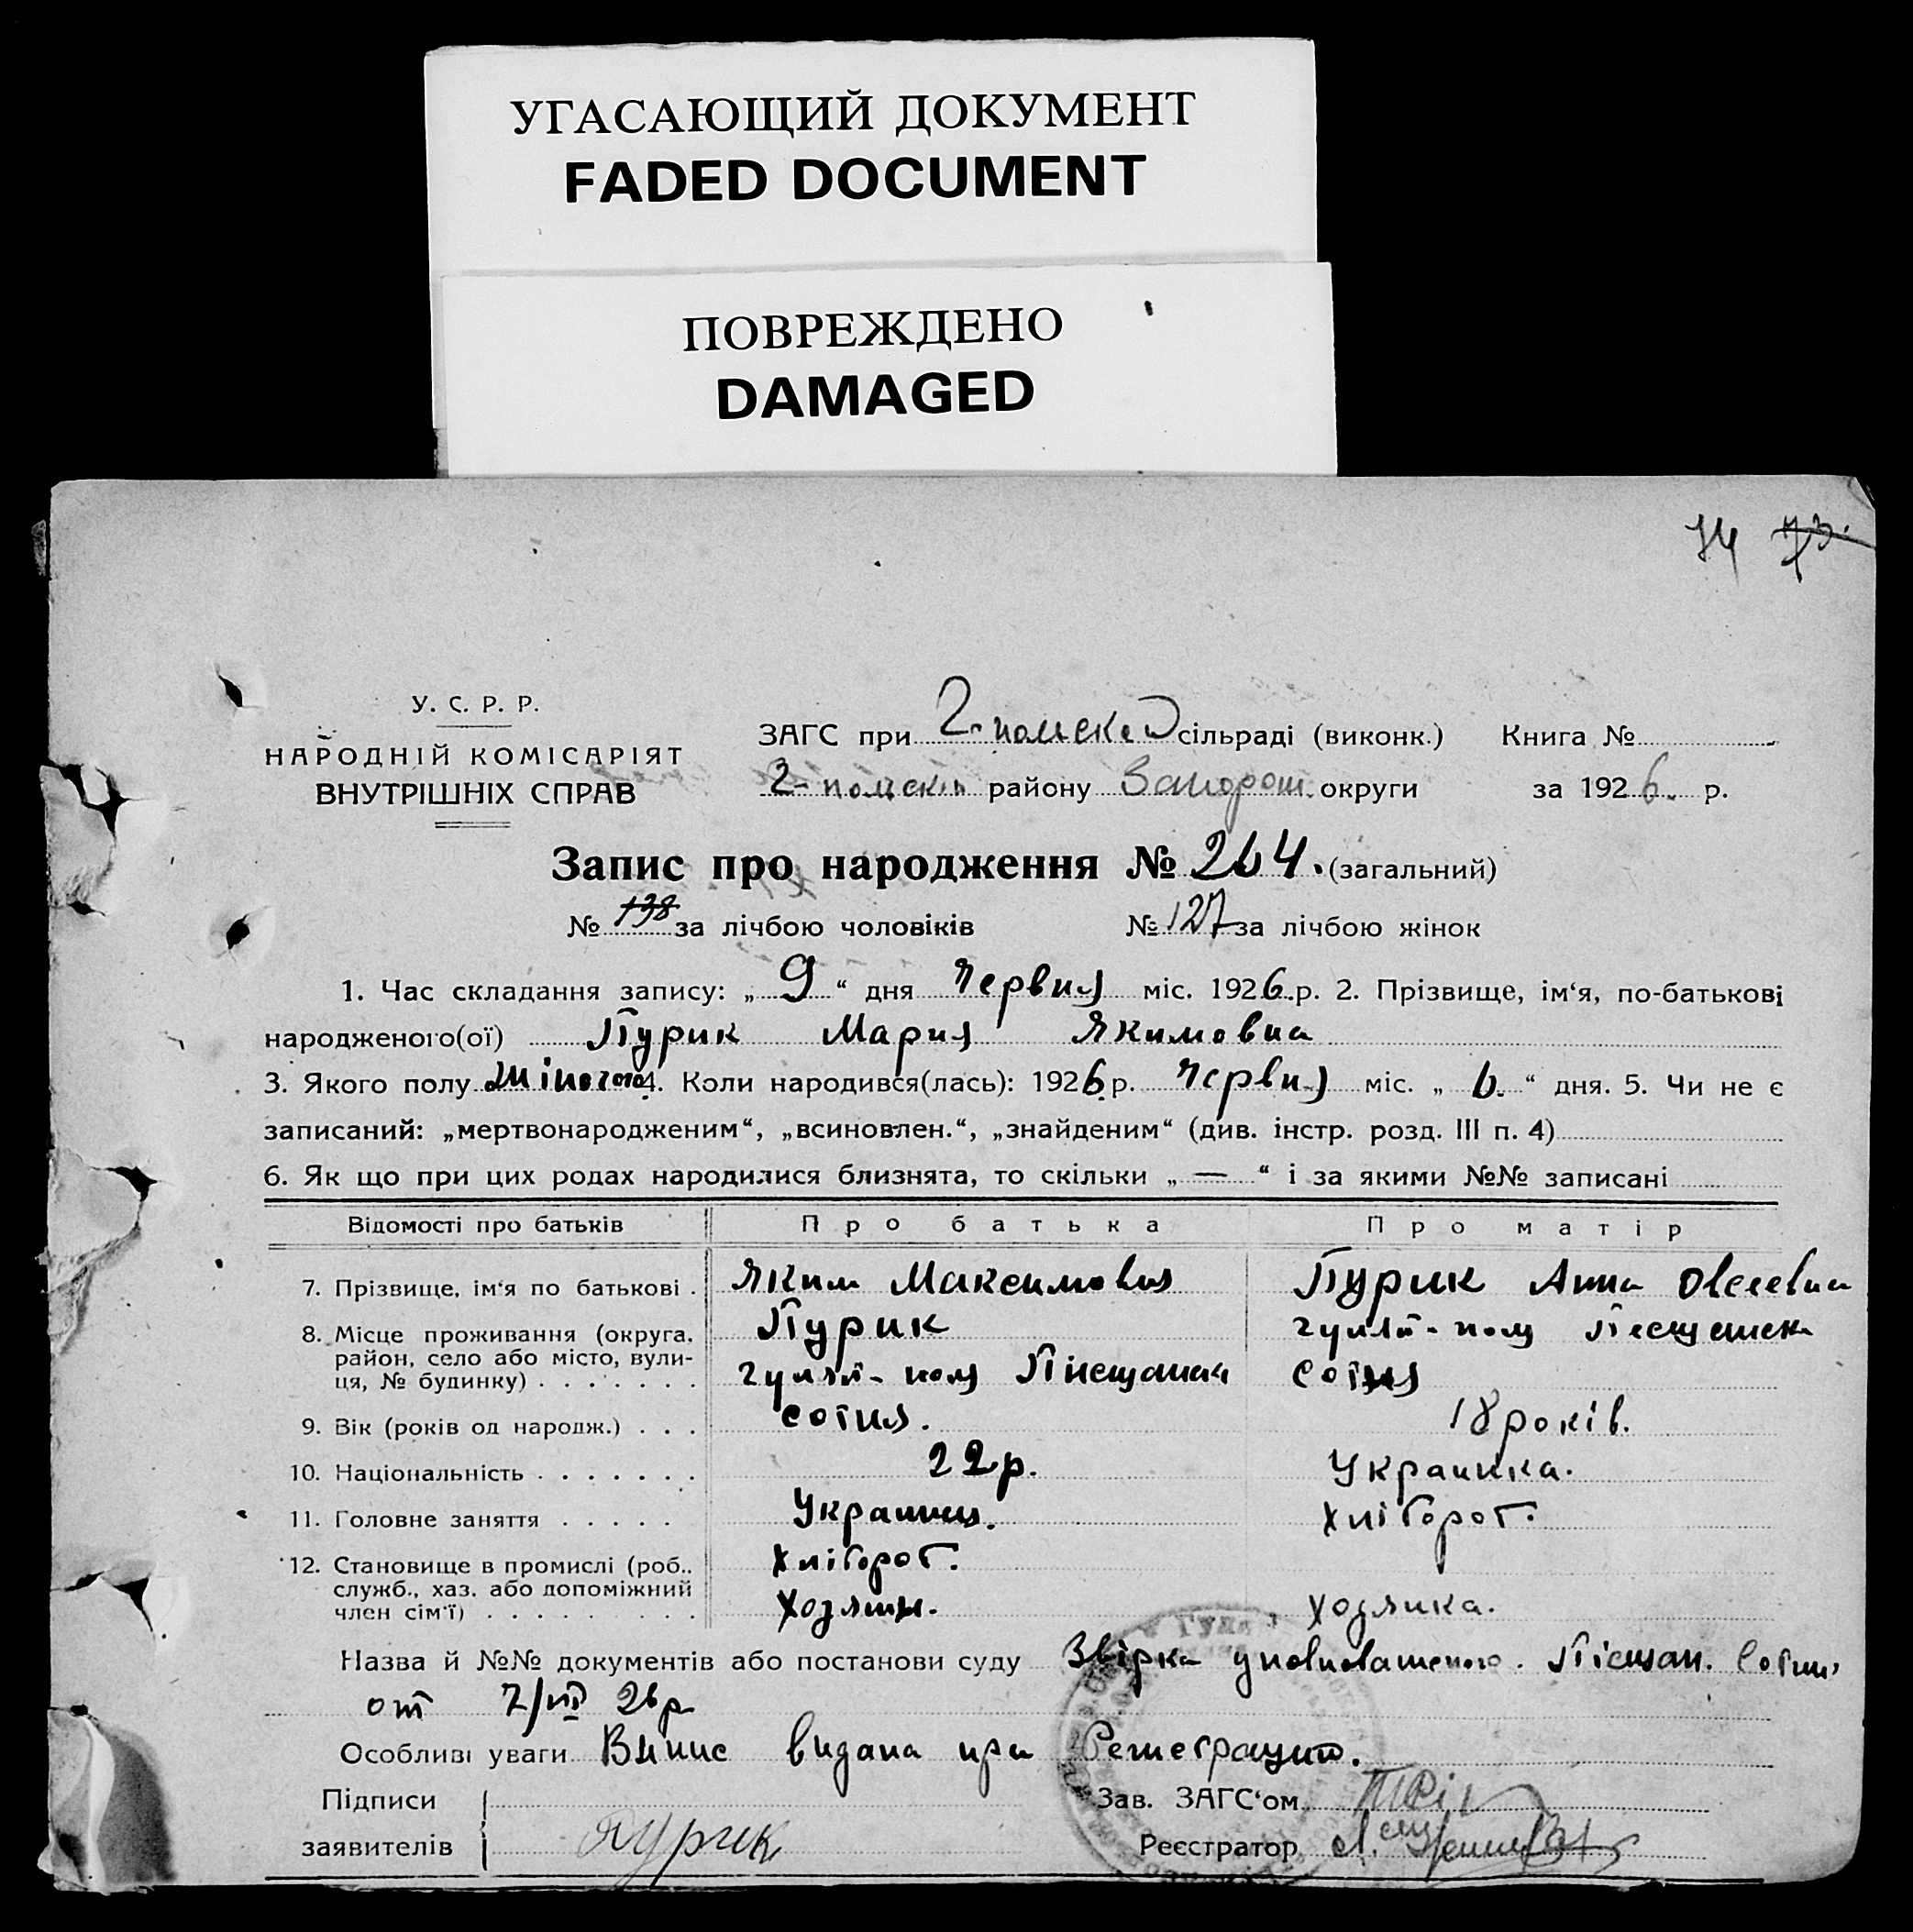 УГАСАЮЩИЙ ДОКУМЕНТ
FADED DOCUMENT
ПОВРЕЖДЕНО
DAMAGED
74 73.
У. С. Р. Р.
НАРОДНІЙ КОМІСАРІЯТ
ВНУТРІШНІХ СПРАВ
ЗАГС при Г-польскей сільраді (виконк.) Книга №
Г-польскій району Запорож. округи за 1926. р.
Запис про народження № 264. (загальний)
№ 138 за лічбою чоловіків № 127 за лічбою жінок
1. Час складання запису: „ 9 “ дня Червня міс. 1926.р. 2. Прізвище, ім‘я, по-батькові
народженого(ої) Пурик Мария Якимовна
3. Якого полу жіночого 4. Коли народився(лась): 1926.р. Червня міс. „ 6. “ дня. 5. Чи не є
записаний: „мертвонародженим“, „всиновлен.“, „знайденим“ (див. інстр. розд. III п. 4)
6. Як що при цих родах народилися близнята, то скільки „ — “ і за якими №№ записані
Відомості про батьків Про батька Про матір
7. Прізвище, ім‘я по батькові . Яким Максимовия Пурик Анна Овсеевна
8. Місце проживання (округа, Пурик гуляй-поля Песщанск
район, село або місто, вули-
ця, № будинку) . . . . . . . гуляй-поля Піесщаная сотня
9. Вік (років од народж.) . . . сотня. 18 років.
10. Національність . . . . . . . 22 р. Украинка.
11. Головне заняття . . . . . Украинец. Хлібороб.
12. Становище в промислі (роб.. Хлібороб.
служб., хаз. або допоміжний
член сім‘ї) . . . . . . . . . Хозяин. Хозяика.
Назва й №№ документів або постанови суду Звірка уповноваженого. Піещан. Сотни
от 7/VI 26 р
Особливі уваги Випис видана при Регестрации.
Підписи Зав. ЗАГС‘ом
заявителів Пурик Реєстратор